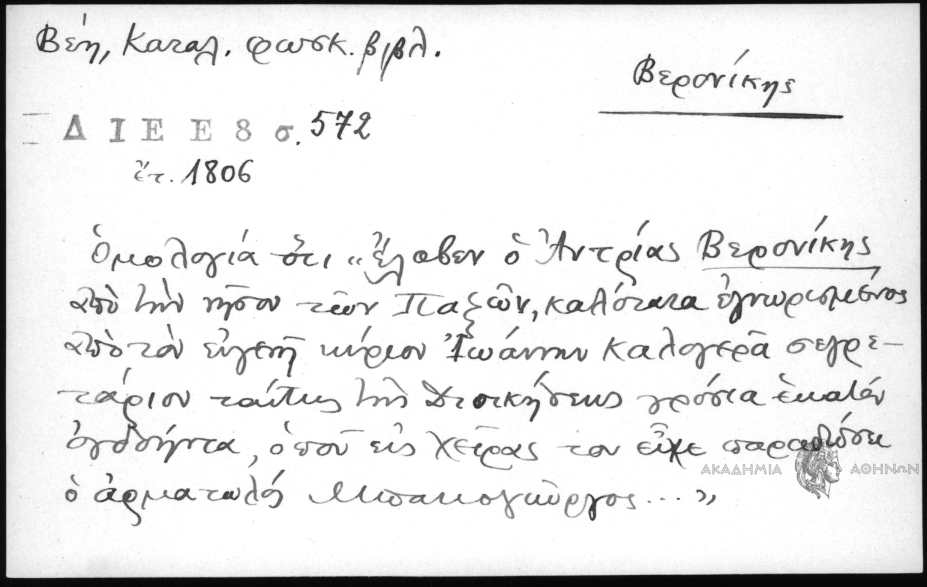 Βέη, Καταλ. φωσκ. βιβλ.
Βερονίκης
ΔΙΕΕ 8 σ. 572
ἔτ. 1806
ὁμολογία ὅτι "ἔλαβεν ὁ Ἀντρίας Βερονίκης
ἀπὸ τὴν νῆσον τῶν Παξῶν, καλότατα ἐγνωρισμένος
ἀπὸ τὸν εὐγενῆ κύριον Ἰωάννην Καλογερᾶ σεγρε-
τάριον ταύτης τῆς Διοικήσεως γρόσια ἑκατόν
ὀγδοήντα, ὁποῦ εἰς χεῖρας του εἶχε παραδόσει
ὁ ἀρματωλός Μπακογιῶργος..."
ΑΚΑΔΗΜΙΑ ΑΘΗΝΩΝ